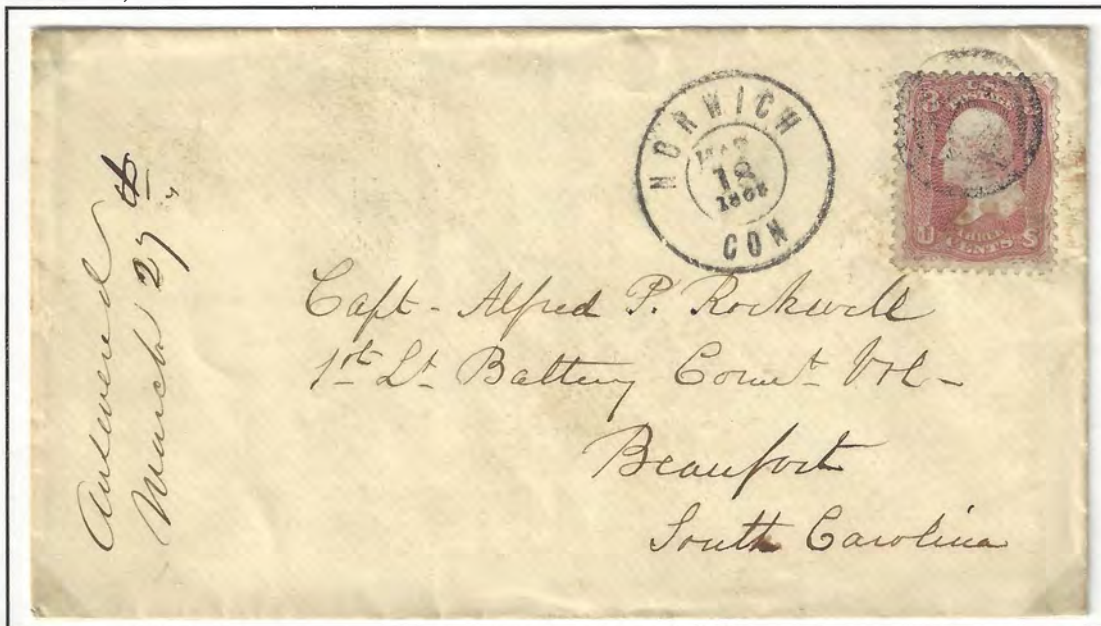 Answered
March 27th
NORWICH
MAR
18
CON
THREE
U CENTS S
Capt - Alfred P. Rockwell
1st Lt Battery Connt Vol -
Beaufort
South Carolina